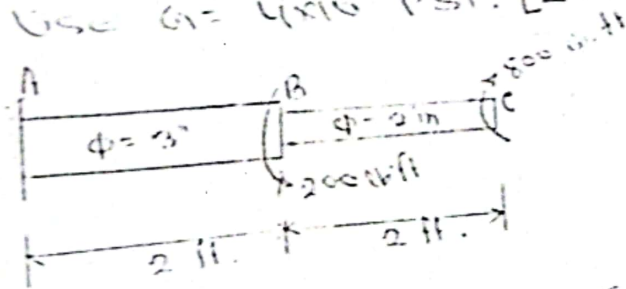 Use G = 4x10 psi.
A
B
800 lb.ft
C
ϕ = 3"
ϕ = 2 in
200 lb ft
2 ft.
2 ft.